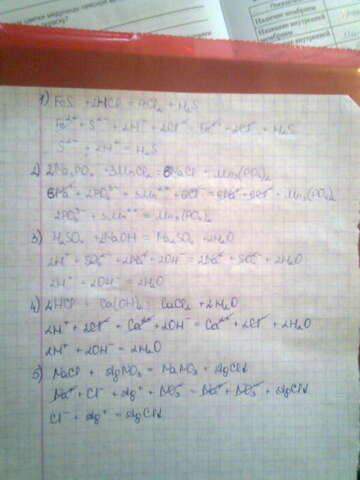 Наличие мембраны
1) FeS + 2HCl = FeCl₂ + H₂S
Fe²⁺ + S²⁻ + 2H⁺ + 2Cl⁻ = Fe²⁺ + 2Cl⁻ + H₂S
S²⁻ + 2H⁺ = H₂S
2) 2Na₃PO₄ + 3MnCl₂ = 6NaCl + Mn₃(PO₄)₂
6Na⁺ + 2PO₄³⁻ + 3Mn²⁺ + 6Cl⁻ = 6Na⁺ + 6Cl⁻ + Mn₃(PO₄)₂
2PO₄³⁻ + 3Mn²⁺ = Mn₃(PO₄)₂
3) H₂SO₄ + 2NaOH = Na₂SO₄ + 2H₂O
2H⁺ + SO₄²⁻ + 2Na⁺ + 2OH⁻ = 2Na⁺ + SO₄²⁻ + 2H₂O
2H⁺ + 2OH⁻ = 2H₂O
4) 2HCl + Ca(OH)₂ = CaCl₂ + 2H₂O
2H⁺ + 2Cl⁻ + Ca²⁺ + 2OH⁻ = Ca²⁺ + 2Cl⁻ + 2H₂O
2H⁺ + 2OH⁻ = 2H₂O
5) NaCl + AgNO₃ = NaNO₃ + AgCl↓
Na⁺ + Cl⁻ + Ag⁺ + NO₃⁻ = Na⁺ + NO₃⁻ + AgCl↓
Cl⁻ + Ag⁺ = AgCl↓